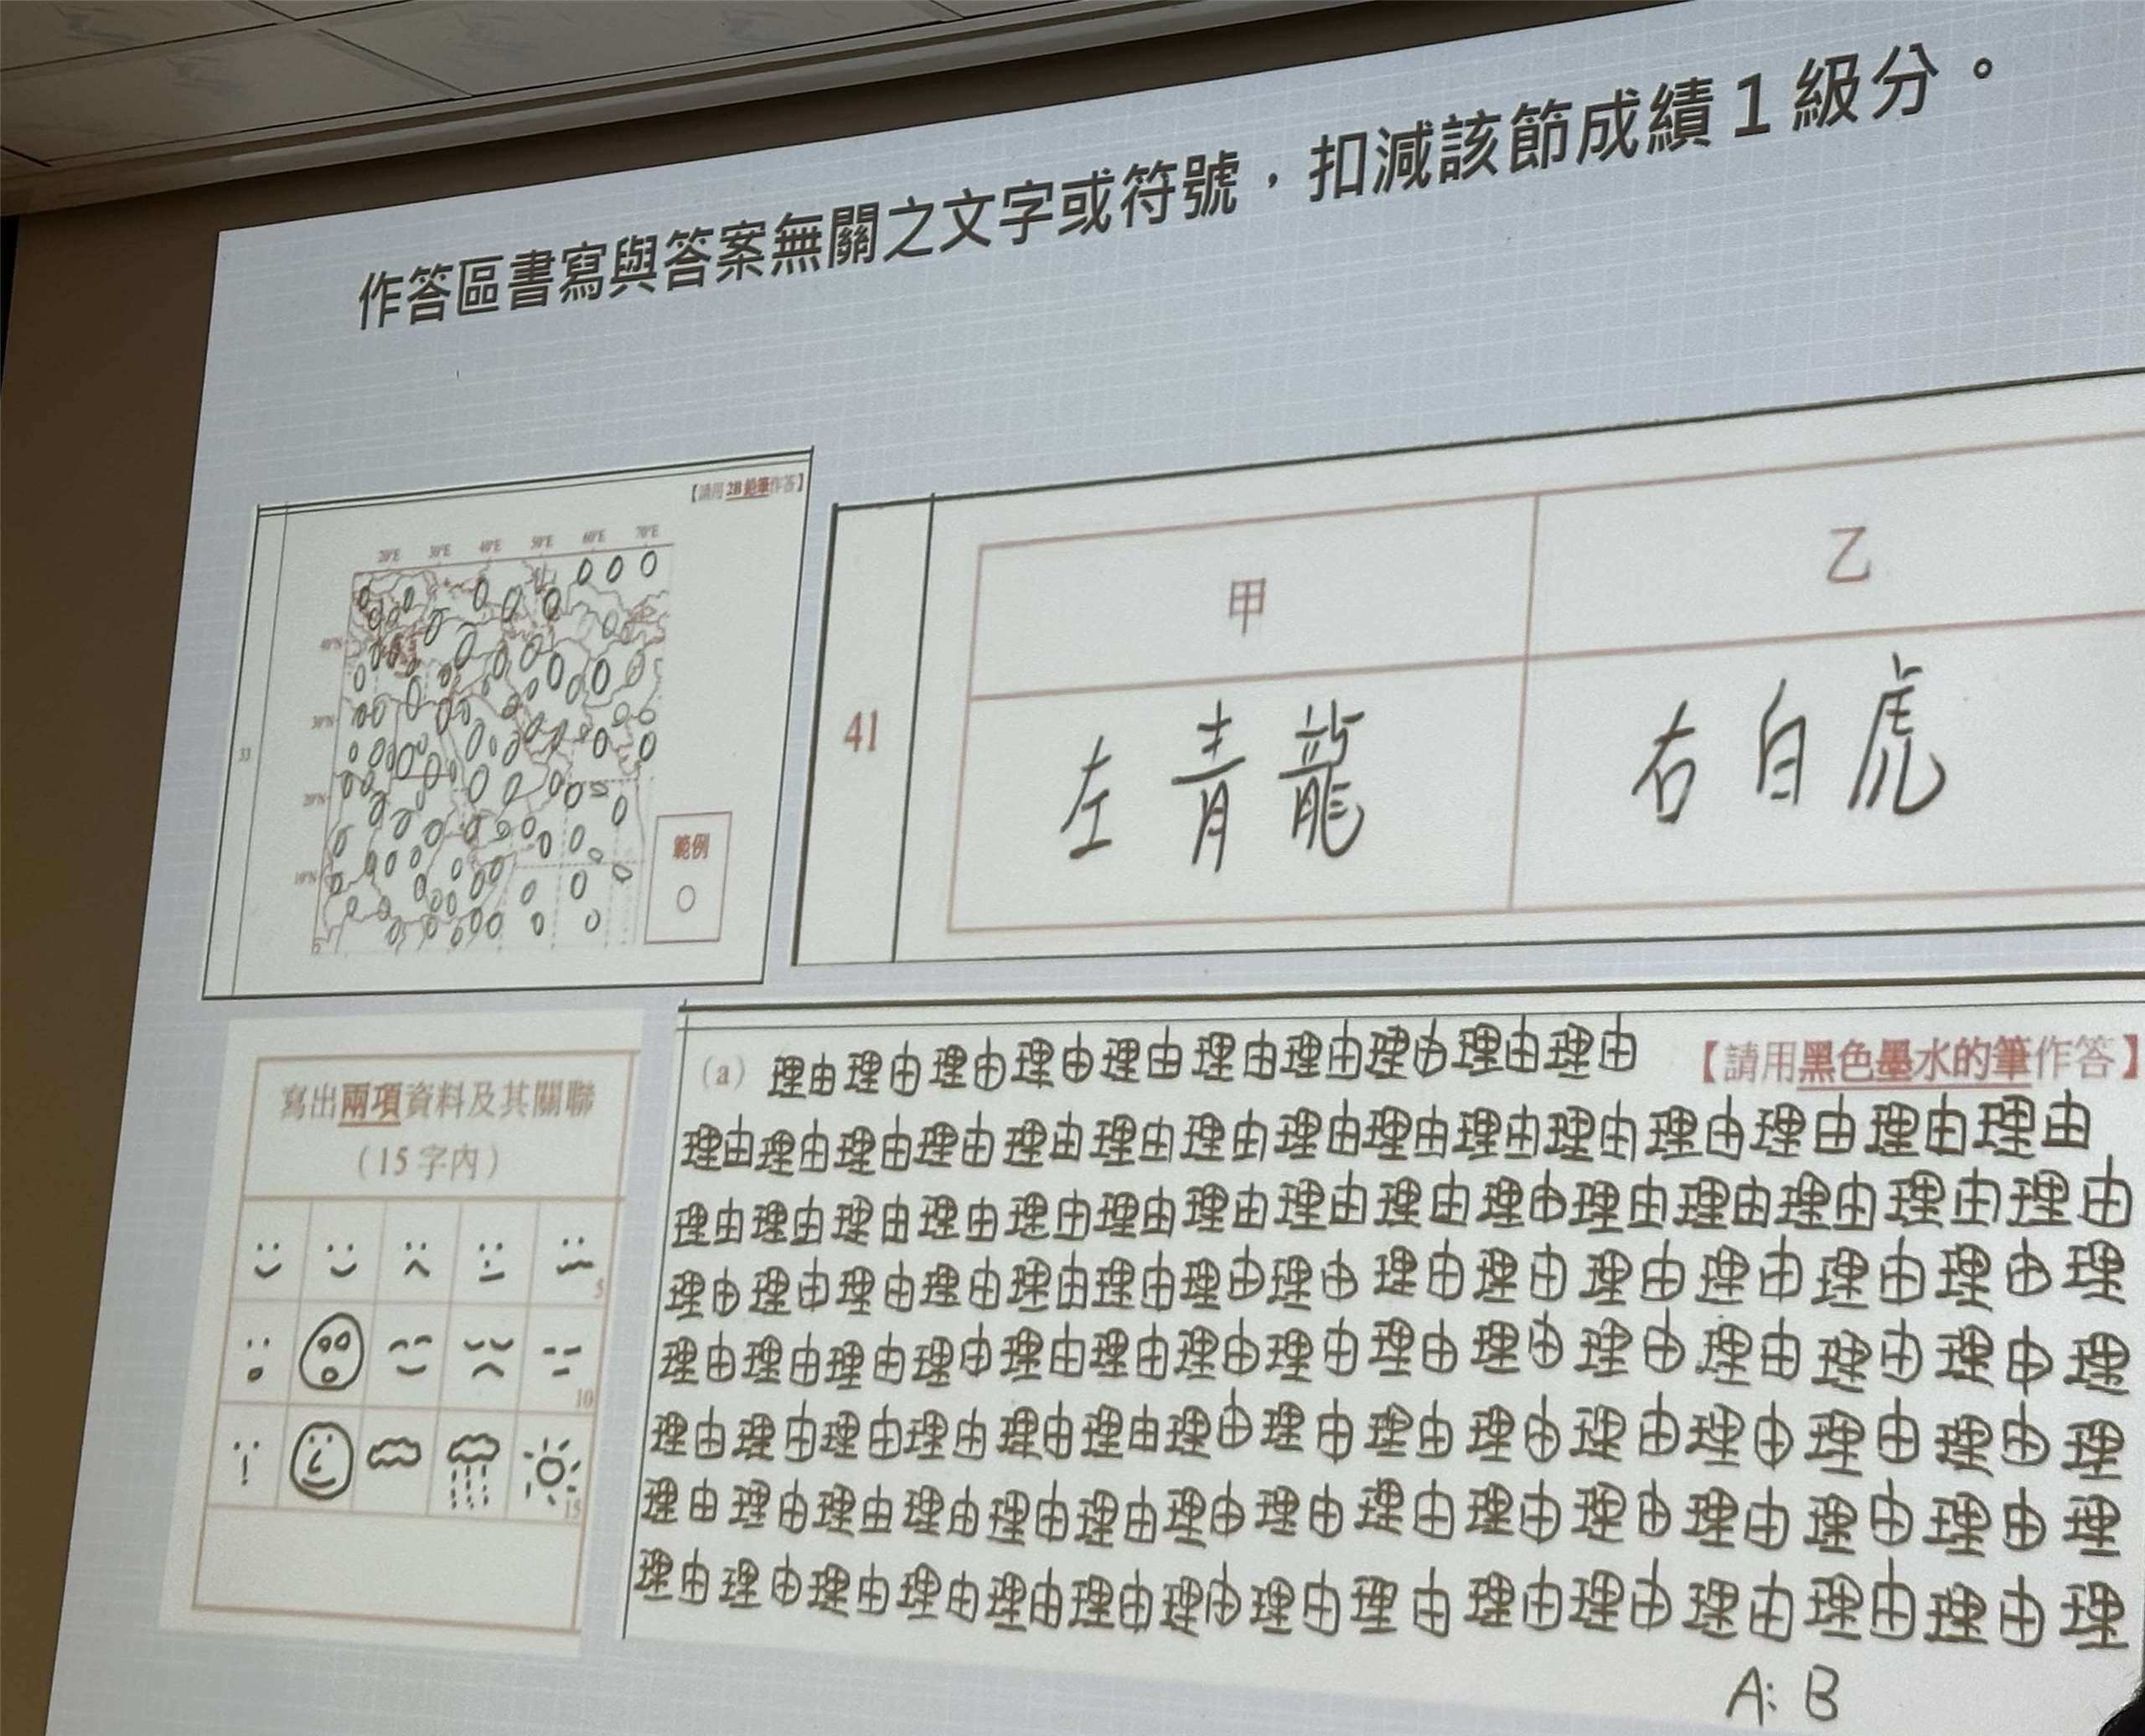 作答區書寫與答案無關之文字或符號，扣減該節成績1級分。
【請用2B鉛筆作答】
20°E 30°E 40°E 50°E 60°E 70°E
40°N
30°N
20°N
10°N
33
範例
41
甲 乙
左青龍 右白虎
寫出兩項資料及其關聯
（15字內）
5
10
15
(a) 理由理由理由理由理由理由理由理由理由理由 【請用黑色墨水的筆作答】
理由理由理由理由理由理由理由理由理由理由理由理由理由理由理由
理由理由理由理由理由理由理由理由理由理由理由理由理由理由理由
理由理由理由理由理由理由理由理由理由理由理由理由理由理由理
理由理由理由理由理由理由理由理由理由理由理由理由理由理由理
理由理由理由理由理由理由理由理由理由理由理由理由理由理由理
理由理由理由理由理由理由理由理由理由理由理由理由理由理由理
理由理由理由理由理由理由理由理由理由理由理由理由理由理由理
A: B